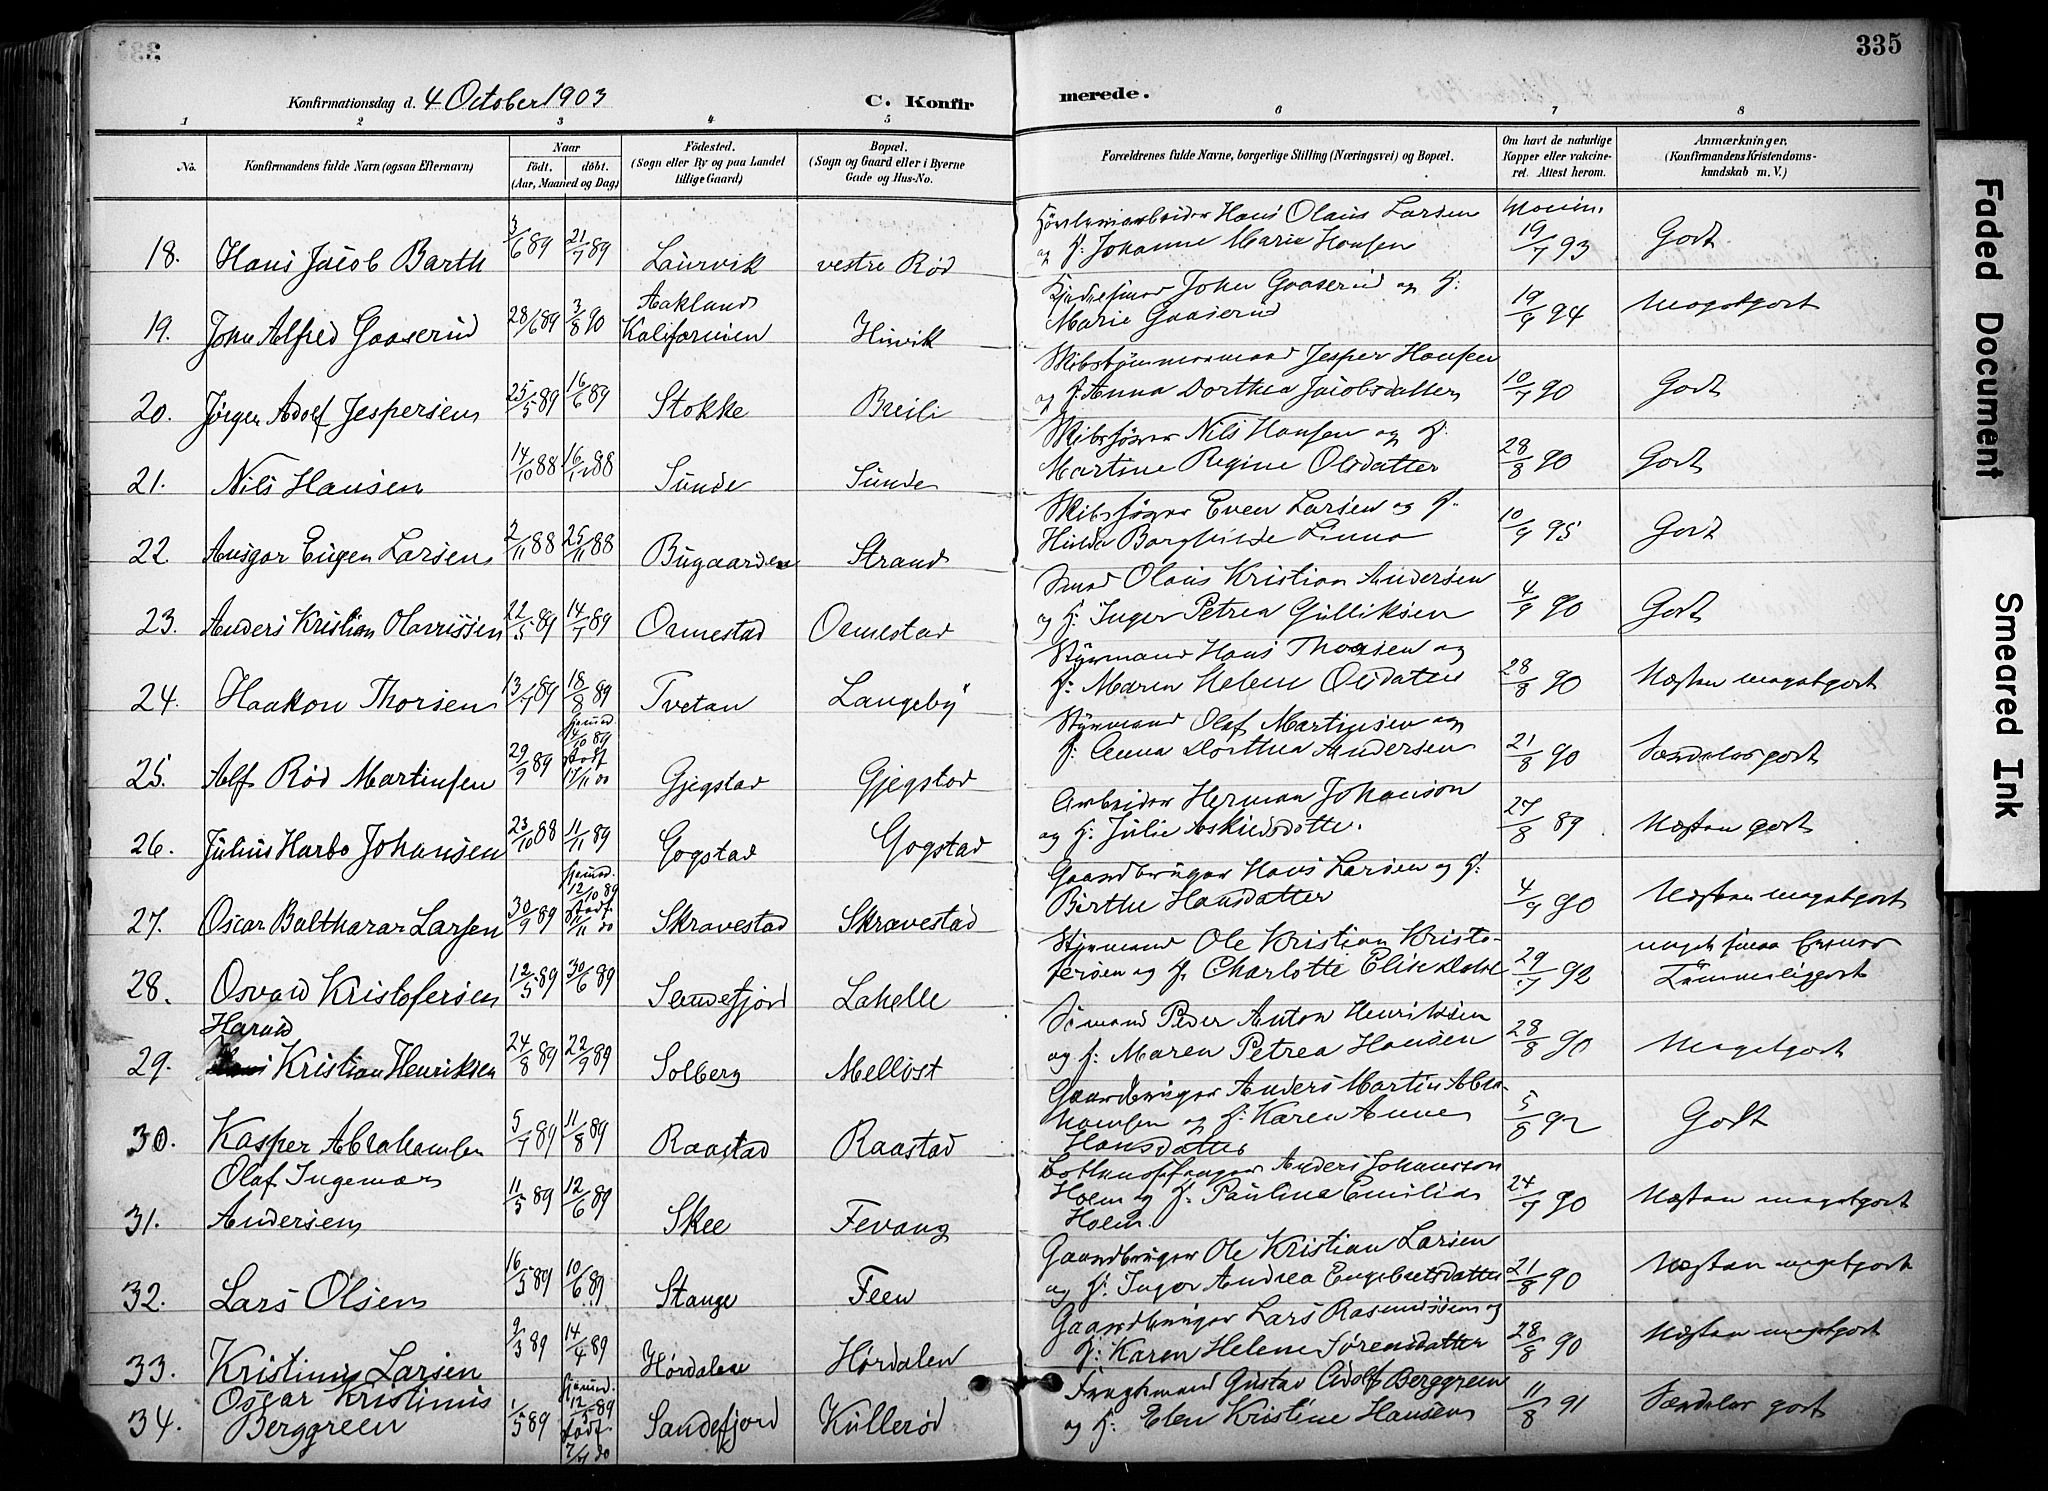 335
Konfirmationsdag d. 4 October 1903
C. Konfirmerede.
1 2 3 4 5 6 7 8
No.
Konfirmandens fulde Navn (ogsaa Efternavn)
Naar
født. døbt.
(Aar, Maaned og Dag)
Fødested.
(Sogn eller By og paa Landet
tillige Gaard)
Bopæl.
(Sogn og Gaard eller i Byerne
Gade og Hus-No.
Forældrenes fulde Navne, borgerlige Stilling (Næringsvei) og Bopæl.
Om havt de naturlige
Kopper eller vakcine-
ret. Attest herom.
Anmærkninger.
(Konfirmandens Kristendoms-
kundskab m. V.)
18. Hans Jacob Barth 3/6 89 21/7 89 Laurvik vestre Rød Hans Olaus Larsen
og H. Johanne Marie Hansen 19/7 93 Godt
19. John Alfred Gaaserud 28/6 89 3/8 90 Aakland
Kalifornien Hinvik John Gaaserud og H:
Marie Gaaserud 19/9 94 Megetgodt
20. Jørgen Adolf Jespersen 25/5 89 16/6 89 Stokke Breili Skibstømmermand Jesper Hansen
og H. Anna Dorthea Jacobsdatter 10/7 90 Godt
21. Nils Hansen 14/10 88 16/12 88 Sunde Sunde Skibsfører Nils Hansen og H.
Martine Regine Olsdatter 28/8 90 Godt
22. Ansgar Eugen Larsen 2/11 88 25/11 88 Bugaarden Strand Skibsfører Even Larsen og H.
Hilda Borghilde Linna 10/9 95 Godt
23. Anders Kristian Olavissen 22/5 89 14/7 89 Ormestad Ormestad Smed Olaus Kristian Andersen
og H. Inger Petrea Gulliksen 4/9 90 Godt
24. Haakon Thorsen 13/7 89 18/8 89 Tvetan Langeby Styrmand Hans Thorsen og
H: Maren Helene Olsdatter 28/8 90 Næsten megetgodt
25. Alf Rød Martinsen 29/9 89 hjemmed.
14/10 89
stadf.
17/11 do Gjegstad Gjegstad Styrmand Olaf Martinsen og
H: Anna Dorthea Andersen 21/8 90 Særdeles godt
26. Julius Harbo Johansen 23/10 88 11/11 89 Gogstad Gogstad Arbeider Herman Johanson
og H. Julie Askiedsdatter. 27/8 89 Næsten godt
27. Oscar Balthazar Larsen 30/9 89 hjemmed.
12/10 89
stadf.
/11 do Skravestad Skravestad Gaardbruger Hans Larsen og H:
Birthe Hansdatter 4/9 90 Næsten megetgodt
28. Osvald Kristofersen 12/5 89 30/6 89 Sandefjord Lahelle Styrmand Ole Kristian Kristo-
fersen og H. Charlotte Elise Dahl 29/7 92 meget
Temmelig godt
29. Harald
Kristian Henriksen 24/8 89 22/9 89 Solberg Melløst Sømand Peder Anton Henriksen
og H: Maren Petrea Hansen 28/8 90 Megetgodt
30. Kasper Abrahamsen 5/7 89 11/8 89 Raastad Raastad Gaardbruger Anders Martin Abra-
hamsen og H: Karen Anne
Hansdatter 5/8 92 Godt
31. Olaf Ingemar
Andersen 11/5 89 12/6 89 Skee Fevang Bottlenosefanger Anders Johansson
Holm og H. Pauline Emilie
Holm. 24/7 90 Næsten megetgodt
32. Lars Olsen 16/5 89 10/6 89 Stange Feen Gaardbruger Ole Kristian Larsen
og H. Inger Andrea Engebretsdatter 21/8 90 Næsten megetgodt
33. Kristinus Larsen 9/3 89 14/4 89 Hørdalen Hørdalen Gaardbruger Lars Rasmussen og
H: Karen Helene Sørensdatter 28/8 90 Næsten megetgodt
34. Oscar Kristinus
Berggreen 1/5 89 hjemmed.
12/5 89
stadf.
7/7 do Sandefjord Kullerød Fangstmand Gustav Adolf Berggreen
og H: Elen Kristine Hansen 11/8 91 Særdeles godt
Faded Document
Smeared Ink